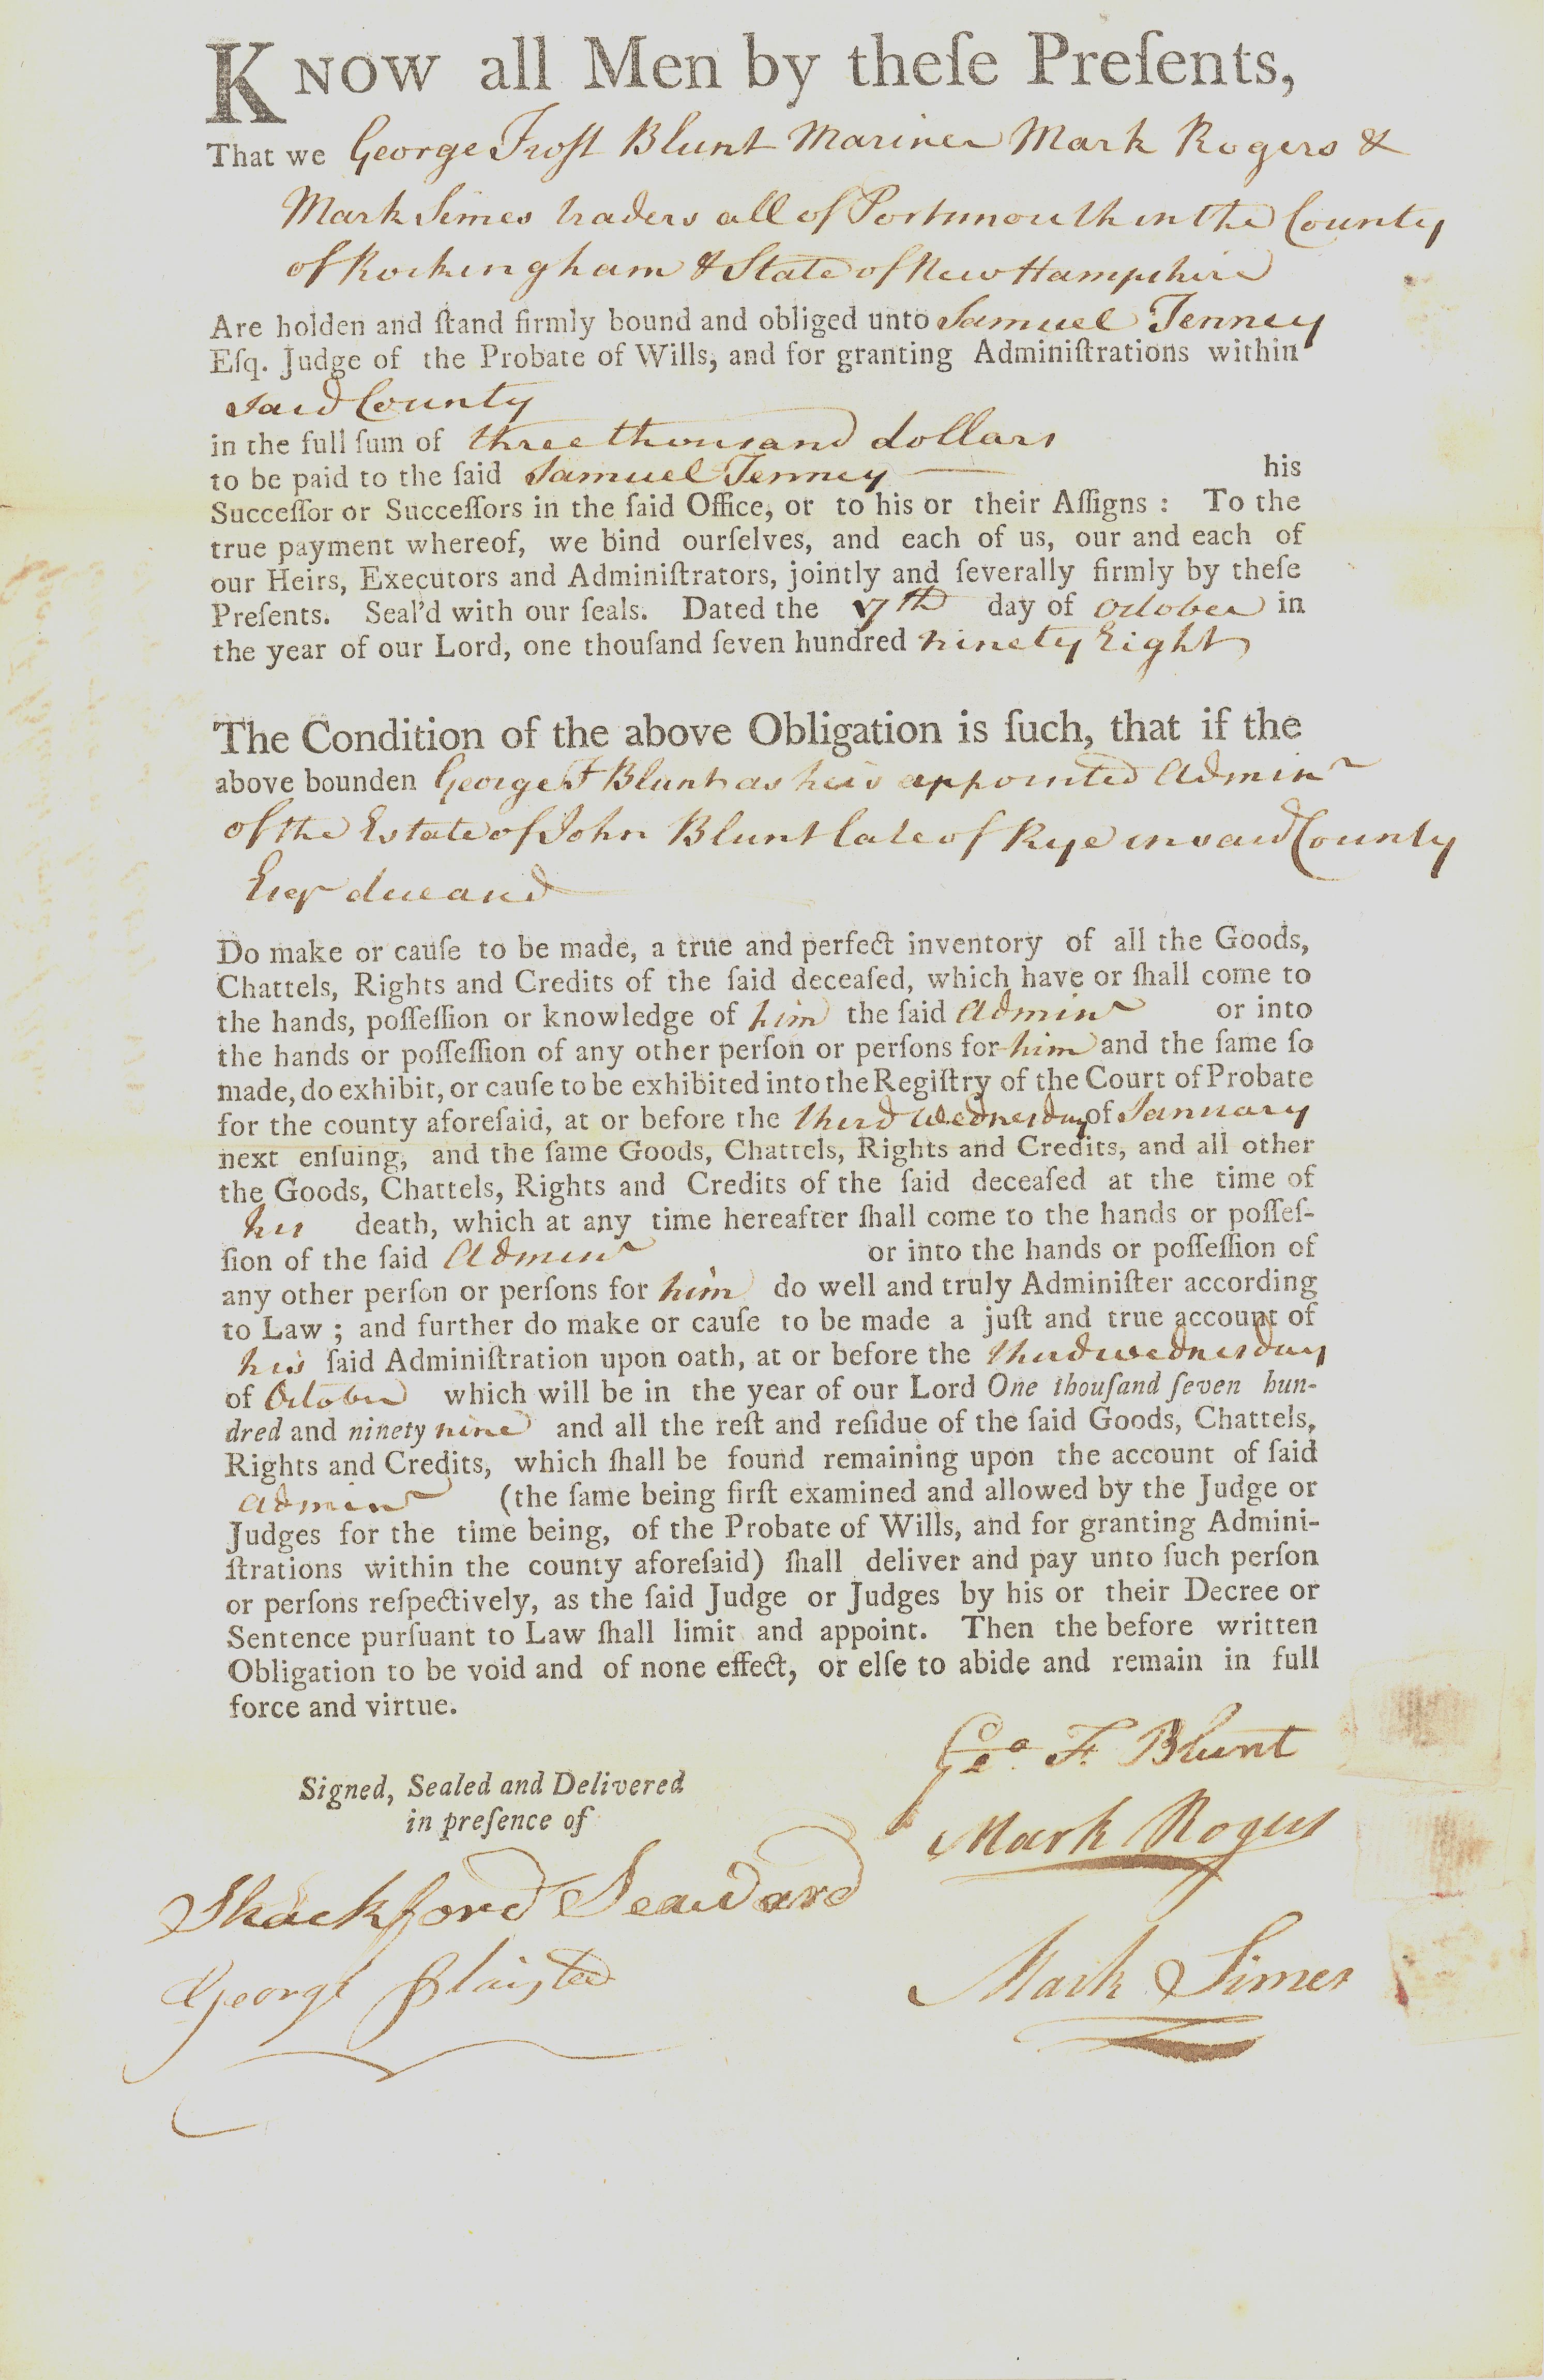 KNOW all Men by theſe Preſents,
That we George Frost Blunt Mariner Mark Rogers &
Mark Simes traders all of Portsmouth in the County
of Rockingham & State of New Hampshire
Are holden and ſtand firmly bound and obliged unto Samuel Tenney
Eſq. Judge of the Probate of Wills, and for granting Adminiſtrations within
said County
in the full ſum of three thousand dollars
to be paid to the ſaid Samuel Tenney his
Succeſſor or Succeſſors in the ſaid Office, or to his or their Aſſigns : To the
true payment whereof, we bind ourſelves, and each of us, our and each of
our Heirs, Executors and Adminiſtrators, jointly and ſeverally firmly by theſe
Preſents. Seal'd with our ſeals. Dated the 17th day of October in
the year of our Lord, one thouſand ſeven hundred ninety Eight
The Condition of the above Obligation is ſuch, that if the
above bounden George F Blunt as he is appointed Adminr
of the Estate of John Blunt late of Rye in said County
Esqr decead
Do make or cauſe to be made, a true and perfect inventory of all the Goods,
Chattels, Rights and Credits of the ſaid deceaſed, which have or ſhall come to
the hands, poſſeſſion or knowledge of him the ſaid Adminr or into
the hands or poſſeſſion of any other perſon or perſons for him and the ſame ſo
made, do exhibit, or cauſe to be exhibited into the Regiſtry of the Court of Probate
for the county aforeſaid, at or before the third Wednesday of January
next enſuing, and the ſame Goods, Chattels, Rights and Credits, and all other
the Goods, Chattels, Rights and Credits of the ſaid deceaſed at the time of
his death, which at any time hereafter ſhall come to the hands or poſſeſ-
ſion of the ſaid Adminr or into the hands or poſſeſſion of
any other perſon or perſons for him do well and truly Adminiſter according
to Law ; and further do make or cauſe to be made a juſt and true account of
his ſaid Adminiſtration upon oath, at or before the third wednesday
of October which will be in the year of our Lord One thouſand ſeven hun-
dred and ninety nine and all the reſt and reſidue of the ſaid Goods, Chattels,
Rights and Credits, which ſhall be found remaining upon the account of ſaid
Adminr (the ſame being firſt examined and allowed by the Judge or
Judges for the time being, of the Probate of Wills, and for granting Admini-
ſtrations within the county aforeſaid) ſhall deliver and pay unto ſuch perſon
or perſons reſpectively, as the ſaid Judge or Judges by his or their Decree or
Sentence purſuant to Law ſhall limit and appoint. Then the before written
Obligation to be void and of none effect, or elſe to abide and remain in full
force and virtue.
Geo. F. Blunt
Signed, Sealed and Delivered
in preſence of
Mark Rogers
Shackford Seaward
George Plaisted
Mark Simes